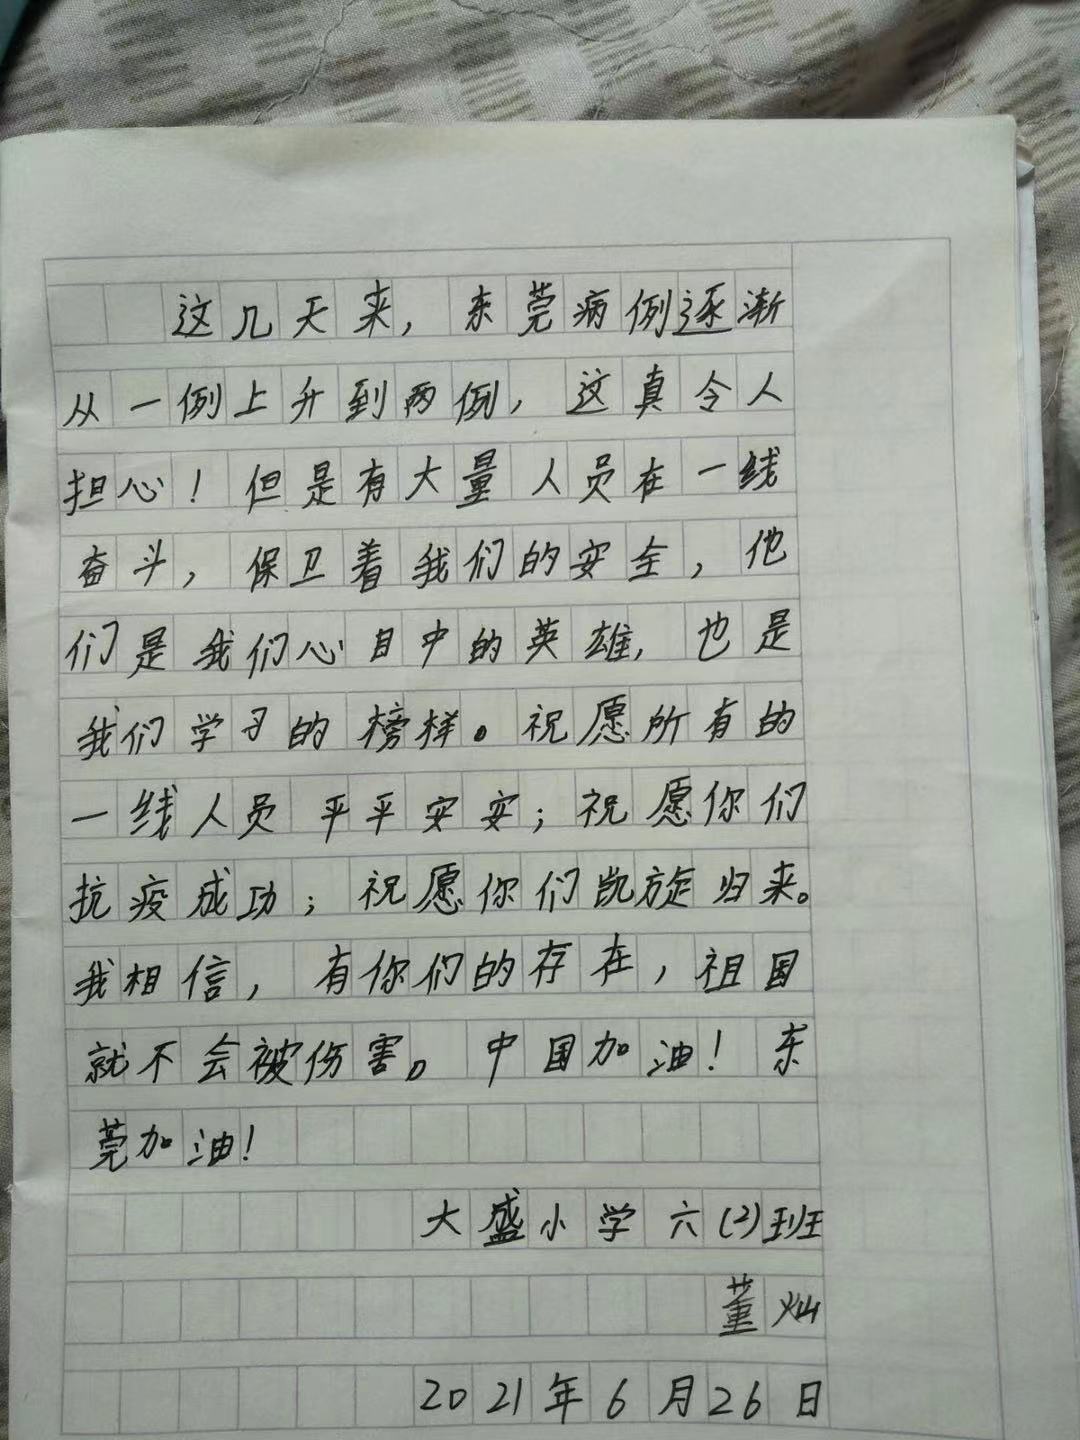 这几天来，东莞病例逐渐
从一例上升到两例，这真令人
担心！但是有大量人员在一线
奋斗，保卫着我们的安全，他
们是我们心目中的英雄，也是
我们学习的榜样。祝愿所有的
一线人员平平安安；祝愿你们
抗疫成功；祝愿你们凯旋归来。
我相信，有你们的存在，祖国
就不会被伤害。中国加油！东
莞加油！
大盛小学六(2)班
董灿
2021年6月26日